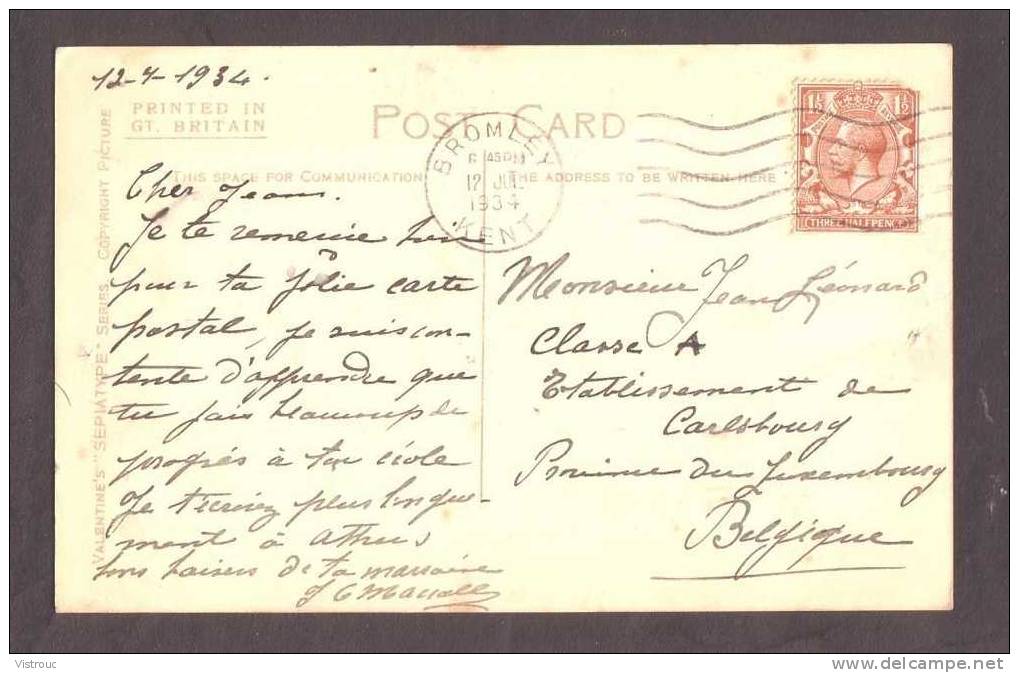 12-7-1934.
PRINTED IN
GT. BRITAIN
POST CARD
THIS SPACE FOR COMMUNICATION
THE ADDRESS TO BE WRITTEN HERE
VALENTINE'S "SEPIATYPE" SERIES. COPYRIGHT PICTURE
BROMLEY
6 45 PM
12 JUL
1934
KENT
THREE HALFPENCE
Cher Jean.
Je te remercie bien
pour ta jolie carte
postal, je suis con-
tente d'apprendre que
tu fais beaucoup de
progrès à ton école
Je t'écrirez plus longue-
ment à
bons baisers de ta marraine
Monsieur Jean Léonard
Classe A
Etablissement de
Carlsbourg
Province du Luxembourg
Belgique
Vistrouc
www.delcampe.net